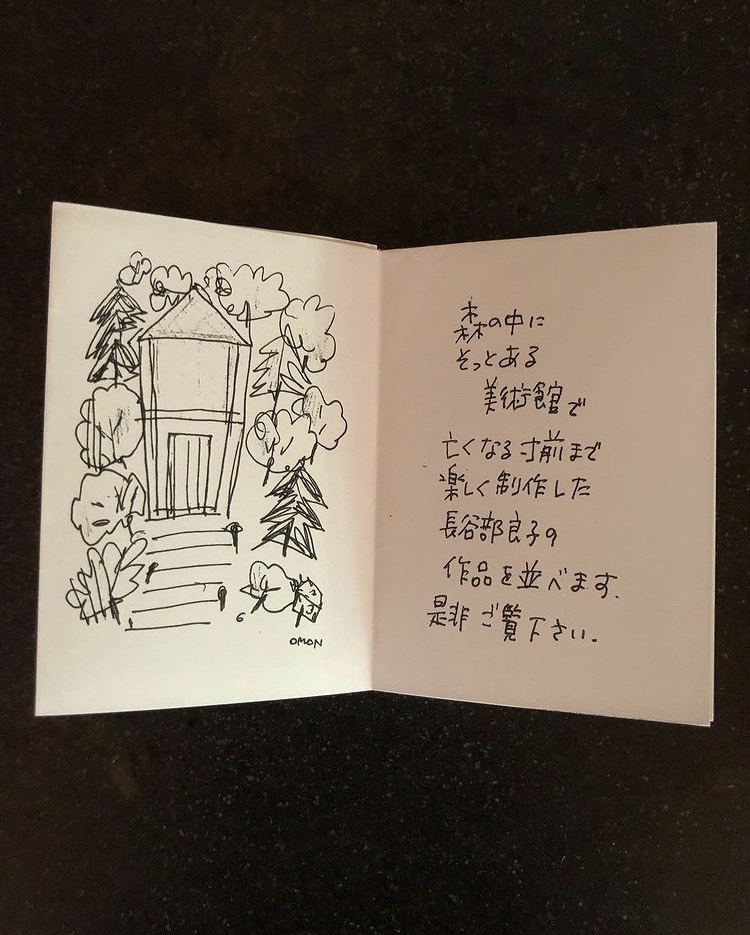 OMON
森の中に
そっとある
美術館で
亡くなる寸前まで
楽しく制作した
長谷部良子の
作品を並べます.
是非ご覧下さい.